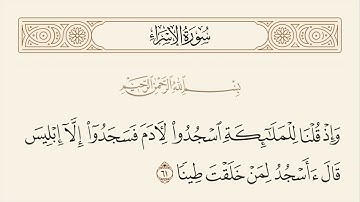 سُورَةُ الْإِسْرَاءِ
بِسْمِ اللَّهِ الرَّحْمَٰنِ الرَّحِيمِ
وَإِذْ قُلْنَا لِلْمَلَٰٓئِكَةِ ٱسْجُدُوا۟ لِءَادَمَ فَسَجَدُوٓا۟ إِلَّآ إِبْلِيسَ
قَالَ ءَأَسْجُدُ لِمَنْ خَلَقْتَ طِينًا ٦١